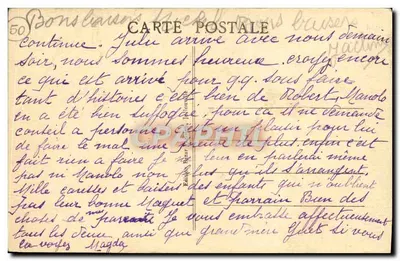 50
Bons baisers
Bons baisers
CARTE POSTALE
continue. Julu arrive avec nous demain
soir, nous sommes heureux. croyez encore
ce qui est arrivé pour q.q. sous faire
tant d'histoires c'est bien de Robert, Manolo
en a été bien suffoqué, pour ça il ne demande
conseil a personne, plaisir pour lui
de faire le mal une de plus, enfin c'est
fait rien a faire je leur en parlerai même
pas ni Manolo non plus qu'ils s'arrangent.
Mille caresses et baisers des enfants qui n'oublient
pas leur bonne Maguet et parrain Bien des
choses de Je vous embrasse affectueusement
tous les deux, ainsi que grand'mere si vous
la voyez Magda